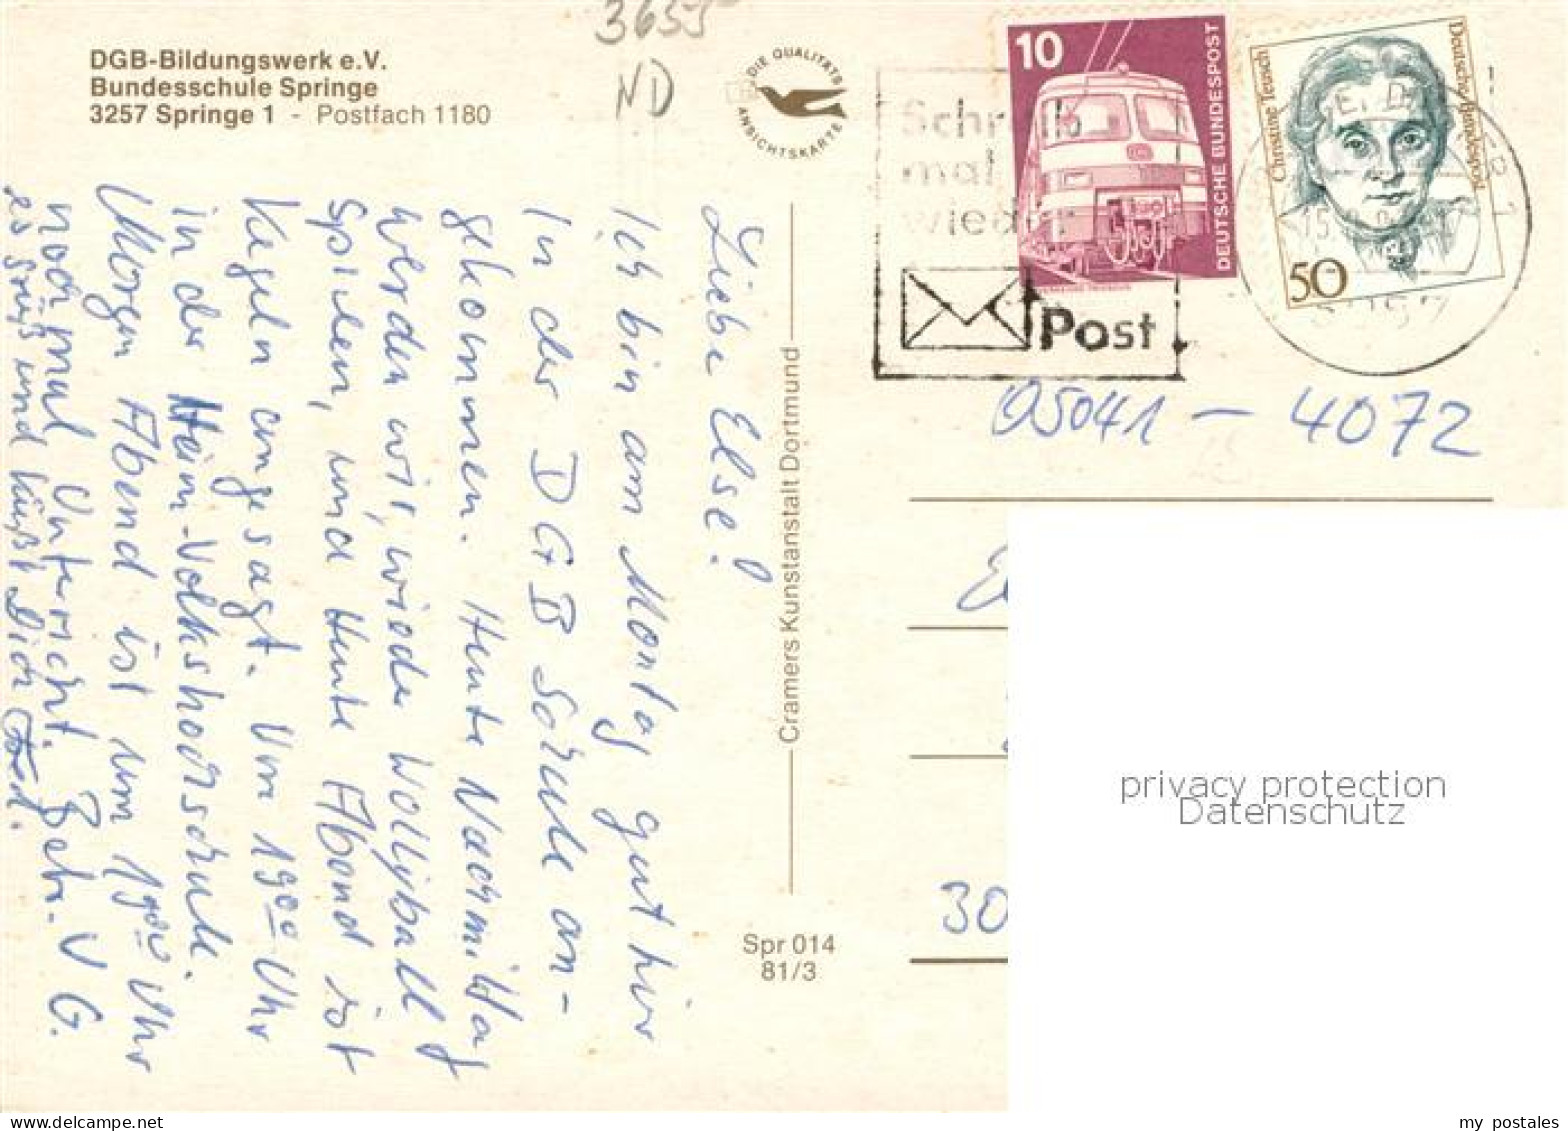 3655
ND
DGB-Bildungswerk e.V.
Bundesschule Springe
3257 Springe 1 - Postfach 1180
DIE QUALITÄTS
ANSICHTSKARTE
Schreib
mal
wieder
Post
10
DEUTSCHE BUNDESPOST
Christine Teusch
Deutsche Bundespost
50
Liebe Else!
Ich bin am Montag gut hir
In der DGB Schule an-
gekommen. Heute Nachmittag
werden wir, wieder Wollyball
Spielen, und Heute Abend ist
Kegeln angesagt. Um 19oo Uhr
in der Heim-Volkshochschule.
Morgen Abend ist um Uhr
noch mal Unterricht. Betr. V G.
es grüßt und küßt Dich
Cramers Kunstanstalt Dortmund
Spr 014
81/3
05041 - 4072
30
privacy protection
Datenschutz
my postales